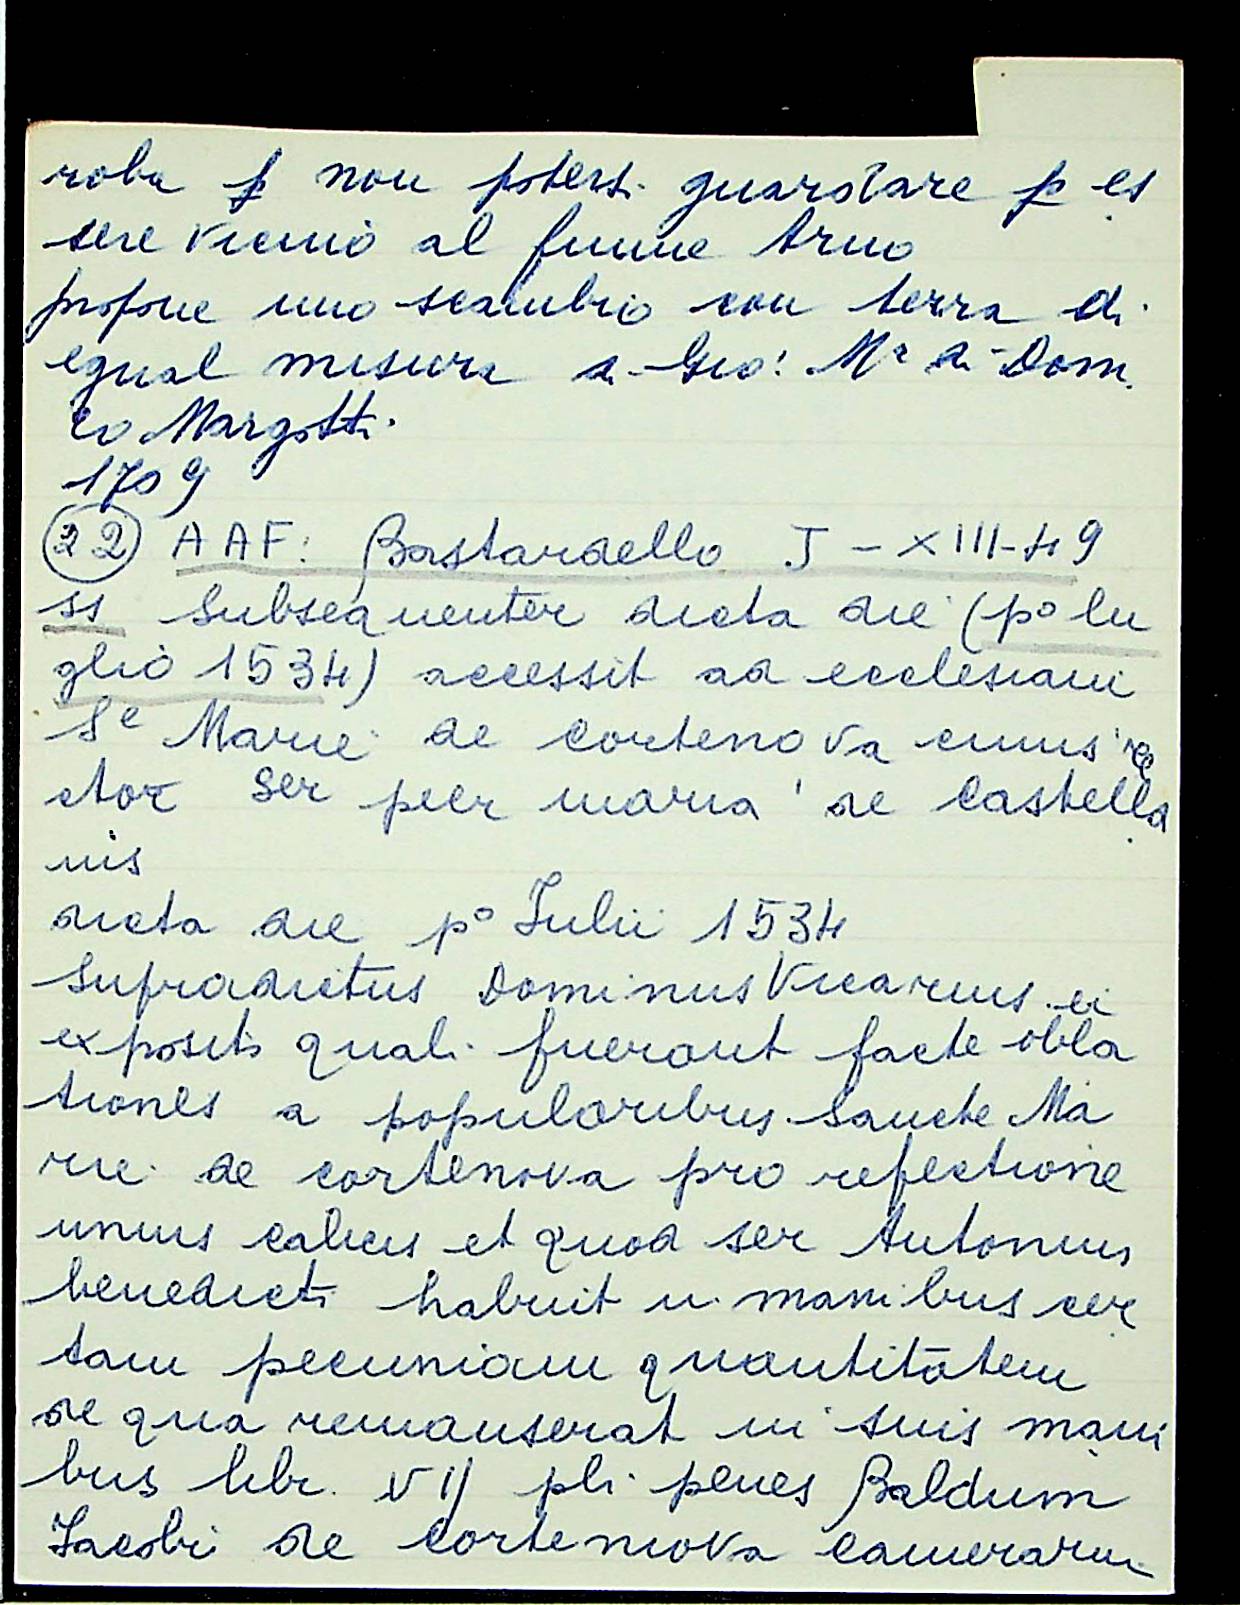 roba p non potersi guardare p es
sere vicino al fiume Arno
propone uno scambio con terra di
egual misura a Gio: Mª di Dom.
co Margotti.
1709
(22) AAF: Bastardello J - XIII-49
ss Subsequenter dicta die (pº lu
glio 1534) accessit ad ecclesiam
Se Marie de cortenova cuius re
ctor Ser pier maria de Castella
nis
dicta die pº Julii 1534
Supradictus Dominus Vicarius ei
expositi quali fuerant facte obla
tiones a popularibus Sancte Ma
rie de cortenova pro refectione
unius calicis et quod ser Antonius
benedicti habuit in manibus cer
tam pecuniam quantitatem
de qua remanserat in suis mani
bus libr. VIJ pli penes Baldum
Jacobi de cortenova camerarium